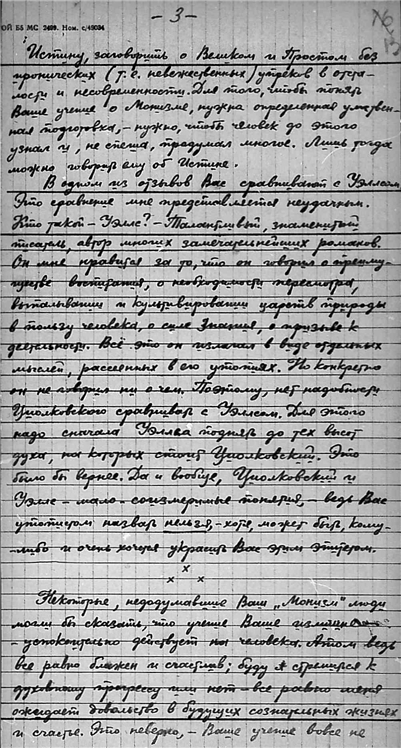 - 3 -
ОЙ Б5 МС 2499. Ном. с/45034
Истину, заговорить о Великом и Простом без
иронических (т.е. невежественных) упреков в отста-
лости и несовременности. Для того, чтобы понять
Ваше учение о Монизме, нужна определенная умствен-
ная подготовка, - нужно, чтобы человек до этого
узнал и, не спеша, продумал многое. Лишь тогда
можно говорить ему об Истине.
В одном из отзывов Вас сравнивают с Уэллсом.
Это сравнение мне представляется неудачным.
Кто такой - Уэллс? - Талантливый, знаменитый
писатель, автор многих замечательнейших романов.
Он мне нравится за то, что он говорил о преиму-
ществе воспитания, о необходимости пересмотра,
выпалывании и культивировании царств природы
в пользу человека, о силе Знания, о призыве к
деятельности. Всё это он излагал в виде отдельных
мыслей, рассеянных в его утопиях. Но конкретно
он не говорил ни о чем. Поэтому, нет надобности
Циолковского сравнивать с Уэллсом. Для этого
надо сначала Уэллса поднять до тех высот
духа, на которых стоит Циолковский. Это
было бы вернее. Да и вообще, Циолковский и
Уэллс - мало-соизмеримые понятия, - ведь Вас
утопистом назвать нельзя, - хотя, может быть, кому-
-либо и очень хочется украсить Вас этим эпитетом.
x
x x
Некоторые, недодумавшие Ваш „Монизм" люди
могли бы сказать, что учение Ваше
-успокоительно действует на человека. Атом ведь
все равно блажен и счастлив; буду я стремиться к
духовному прогрессу или нет - все равно меня
ожидает довольство в будущих сознательных жизнях
и счастье. Это неверно, - Ваше учение вовсе не